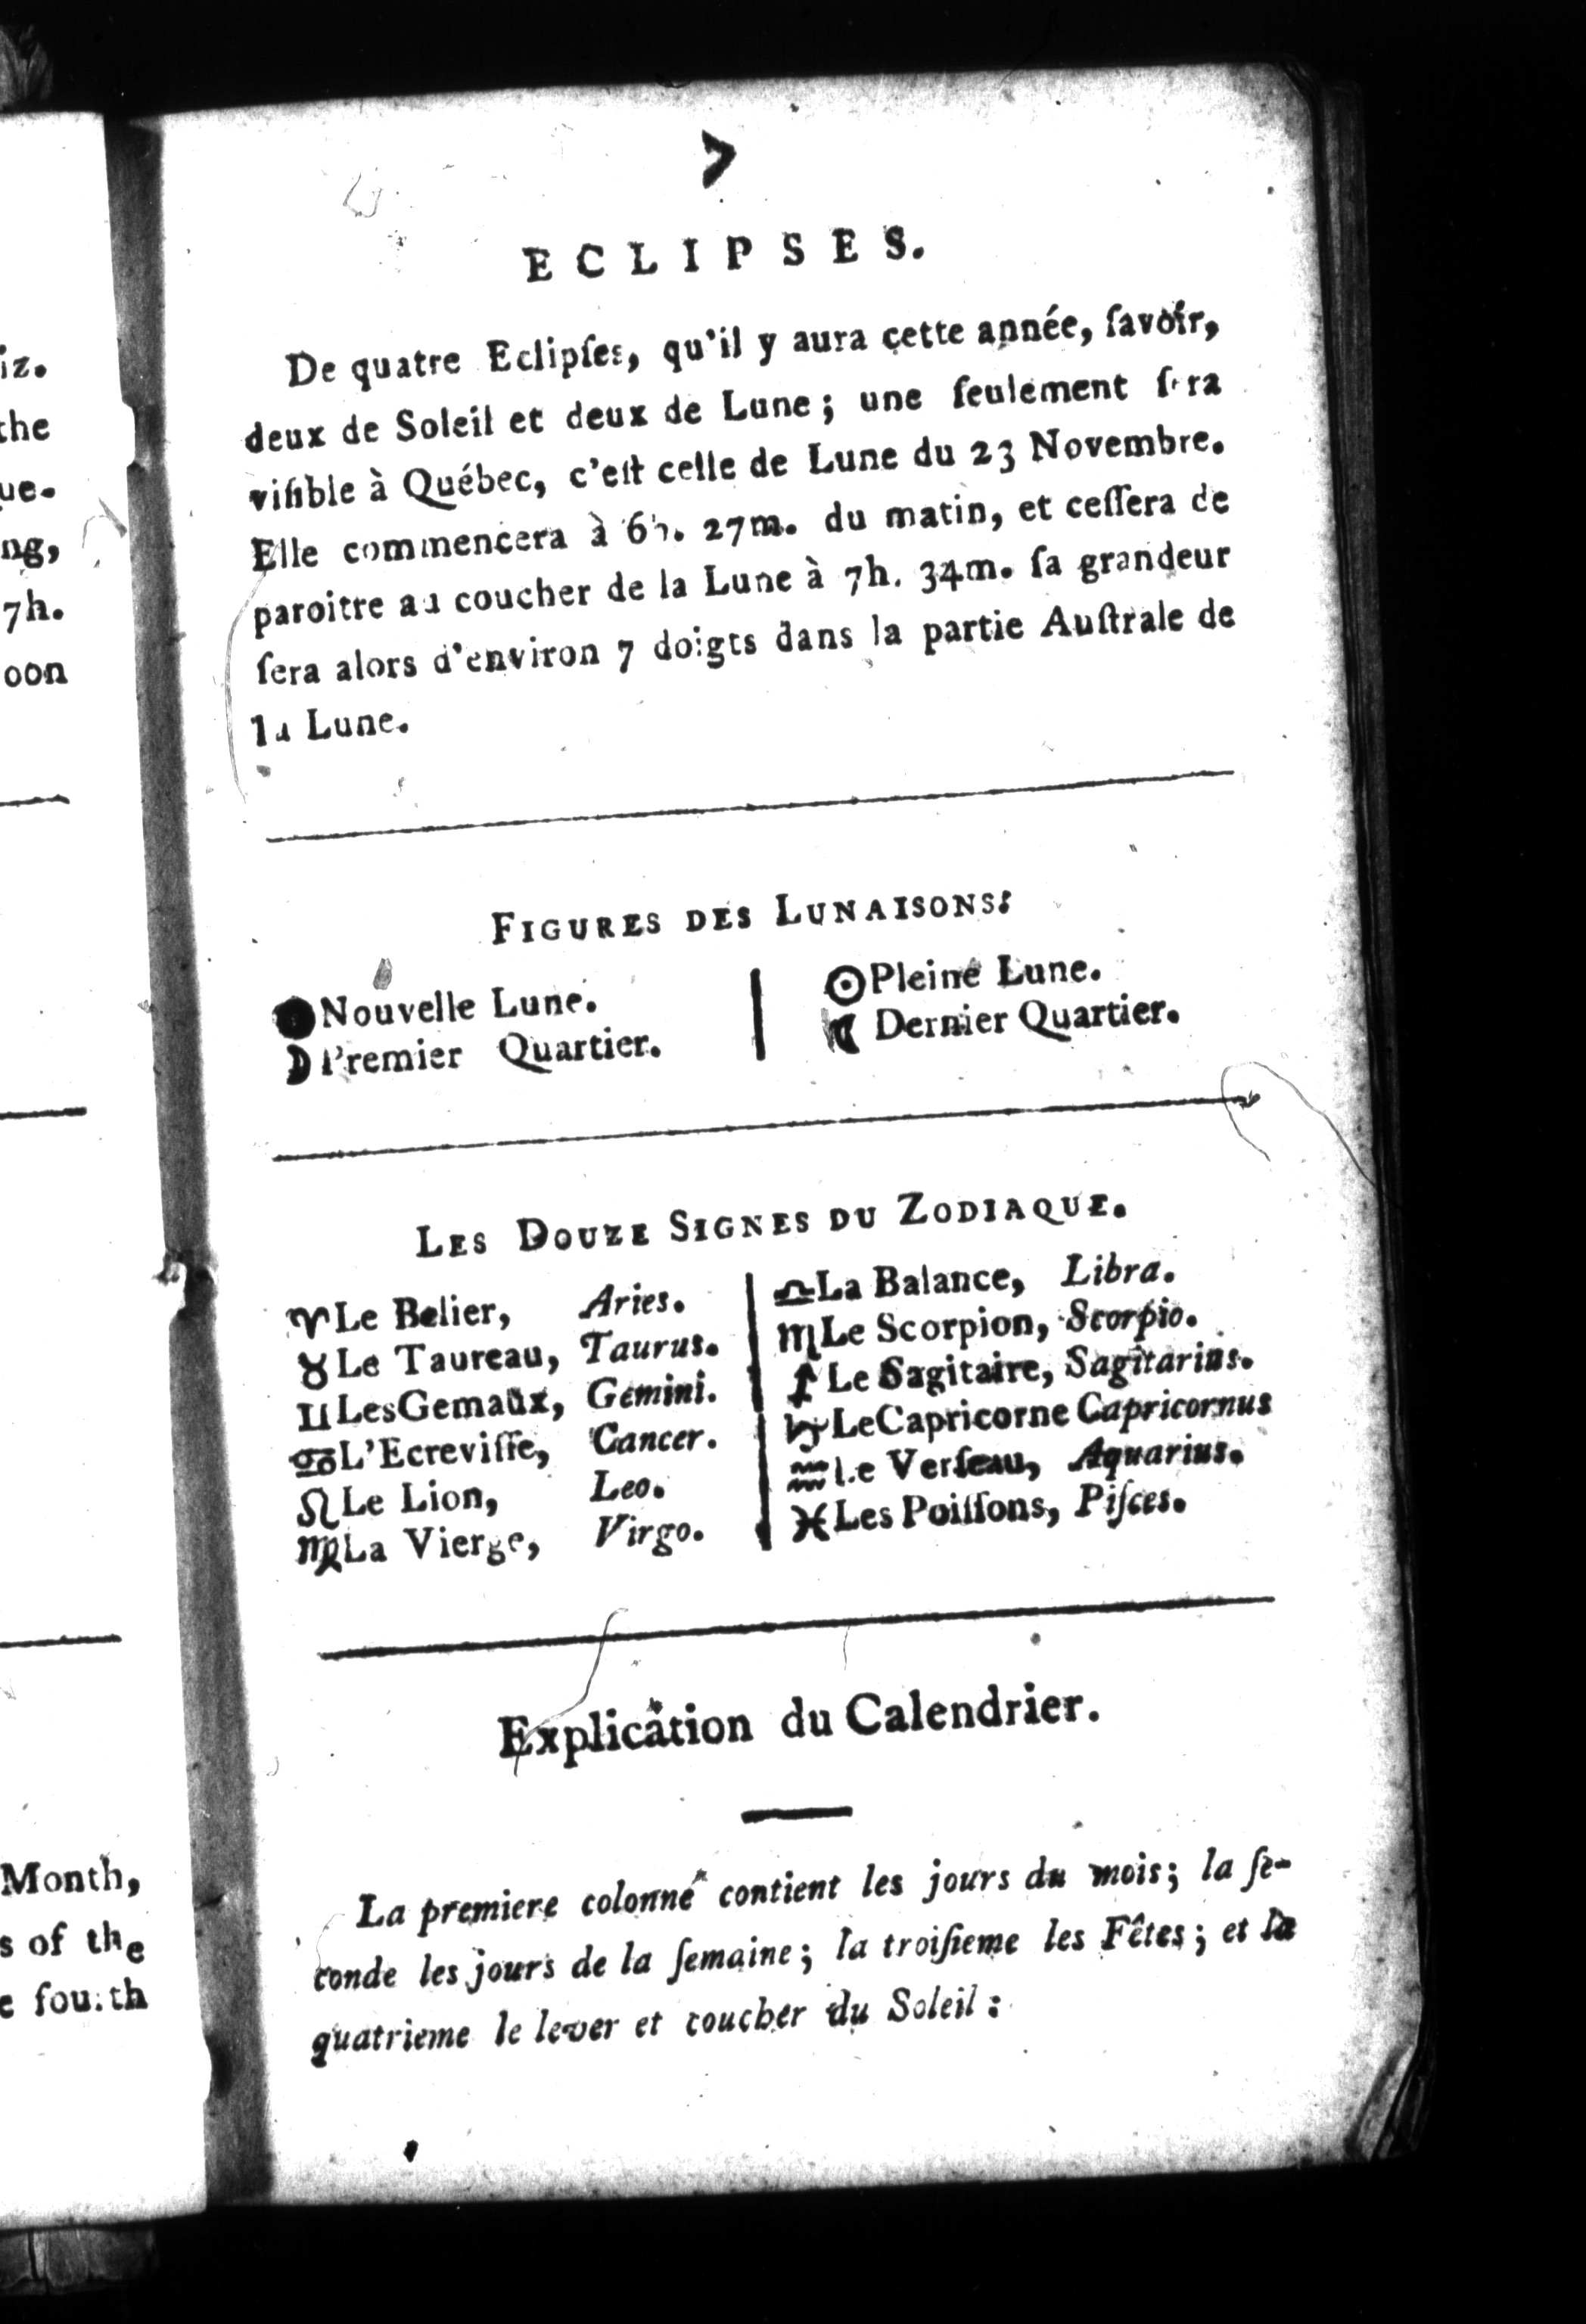 iz.
the
ue-
ng,
7h.
oon
Month,
s of the
e fourth
7
ECLIPSES.
De quatre Eclipſes, qu'il y aura cette année, ſavoir,
deux de Soleil et deux de Lune; une ſeulement ſera
viſible à Québec, c'eſt celle de Lune du 23 Novembre.
Elle commencera à 6h. 27m. du matin, et ceſſera de
paroitre au coucher de la Lune à 7h. 34m. ſa grandeur
ſera alors d'environ 7 doigts dans la partie Auſtrale de
la Lune.
FIGURES DES LUNAISONS:
● Nouvelle Lune. | ☉ Pleine Lune.
☽ Premier Quartier. | ☾ Dernier Quartier.
LES DOUZE SIGNES DU ZODIAQUE.
♈ Le Belier, Aries. | ♎ La Balance, Libra.
♉ Le Taureau, Taurus. | ♏ Le Scorpion, Scorpio.
♊ Les Gemaûx, Gemini. | ♐ Le Sagitaire, Sagitarius.
♋ L'Ecreviſſe, Cancer. | ♑ Le Capricorne Capricornus
♌ Le Lion, Leo. | ♒ Le Verſeau, Aquarius.
♍ La Vierge, Virgo. | ♓ Les Poiſſons, Piſces.
Explication du Calendrier.
La premiere colonne contient les jours du mois; la ſe-
conde les jours de la ſemaine; la troiſieme les Fêtes; et la
quatrieme le lever et coucher du Soleil: